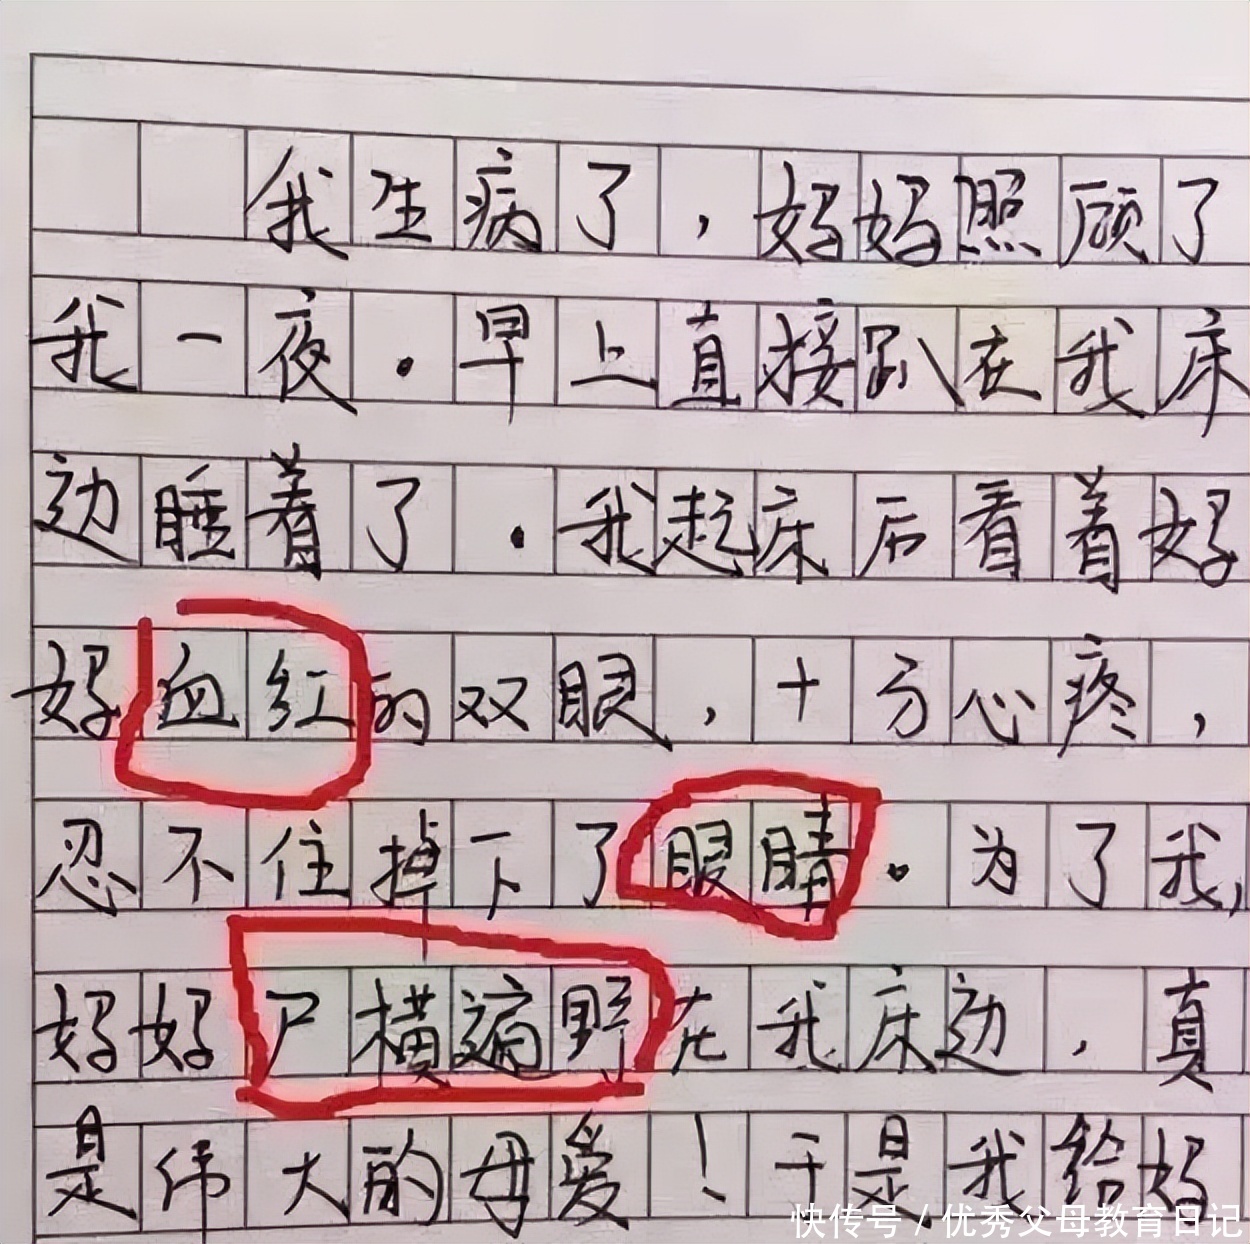 我生病了，妈妈照顾了
我一夜。早上直接趴在我床
边睡着了。我起床后看着妈
妈血红的双眼，十分心疼，
忍不住掉下了眼睛。为了我，
妈妈尸横遍野在我床边，真
是伟大的母爱！于是我给妈
快传号 / 优秀父母教育日记